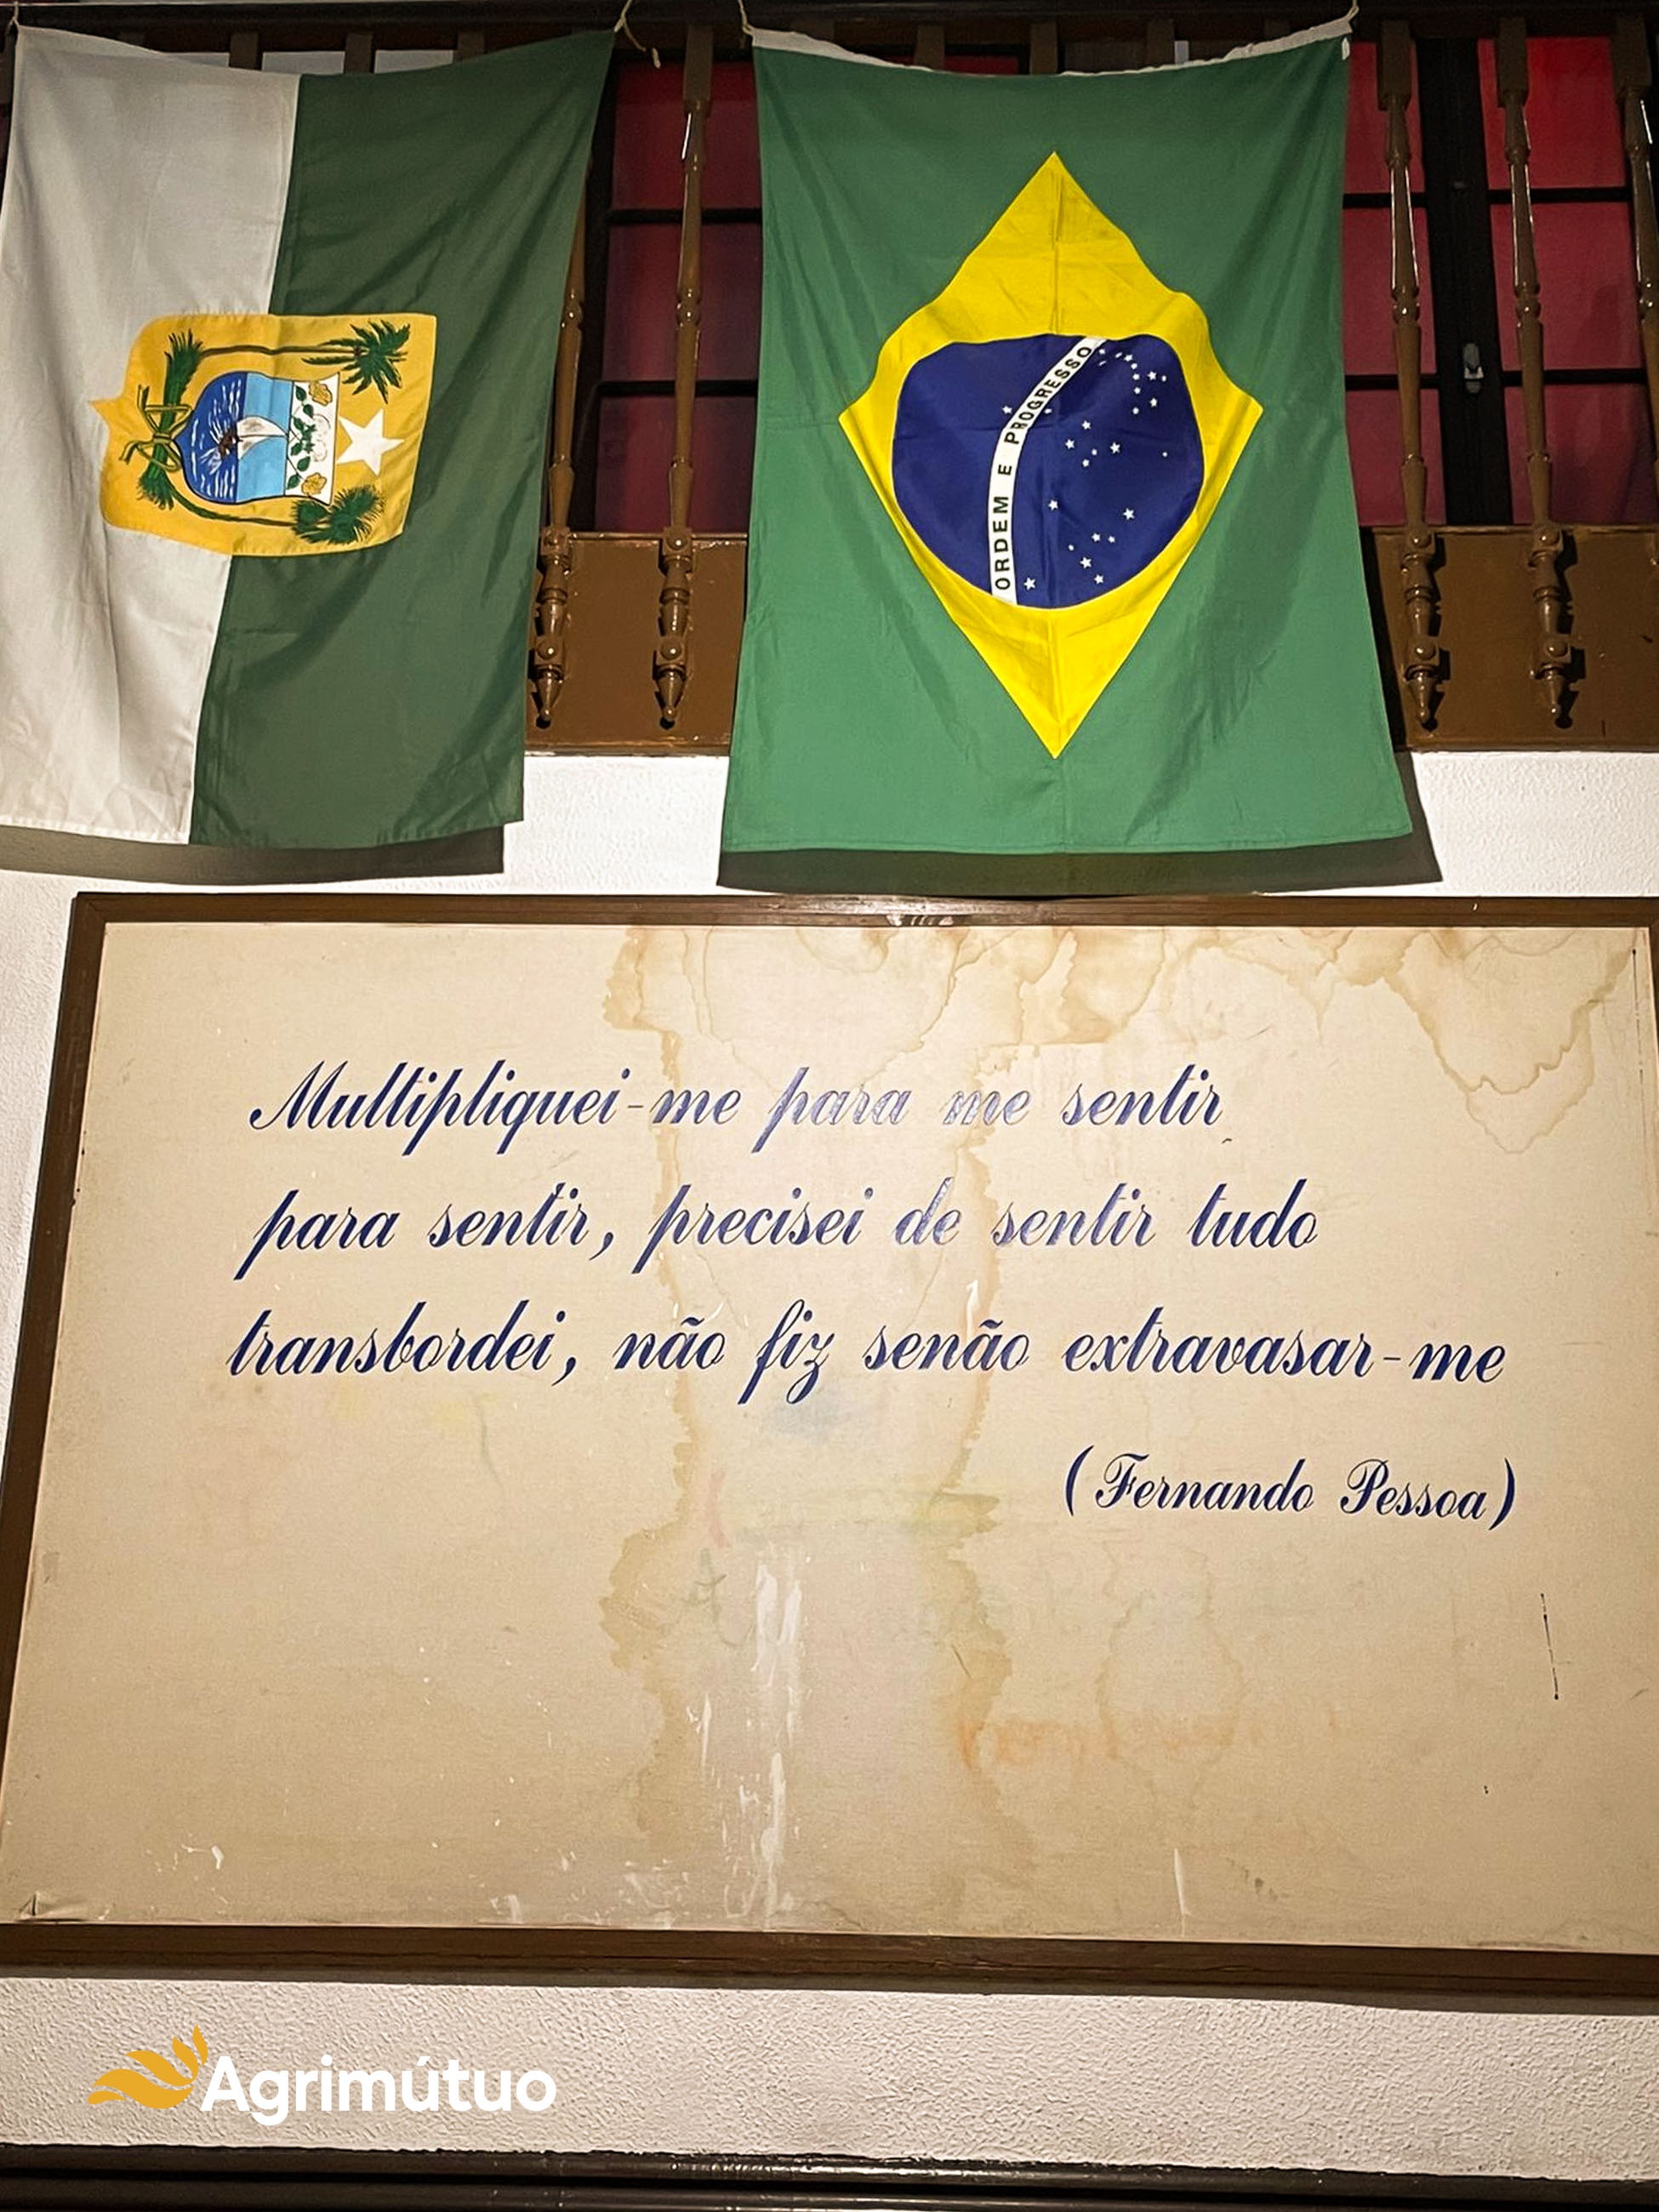 ORDEM E PROGRESSO
Multipliquei-me para me sentir
para sentir, precisei de sentir tudo
transbordei, não fiz senão extravasar-me
(Fernando Pessoa)
Agrimútuo